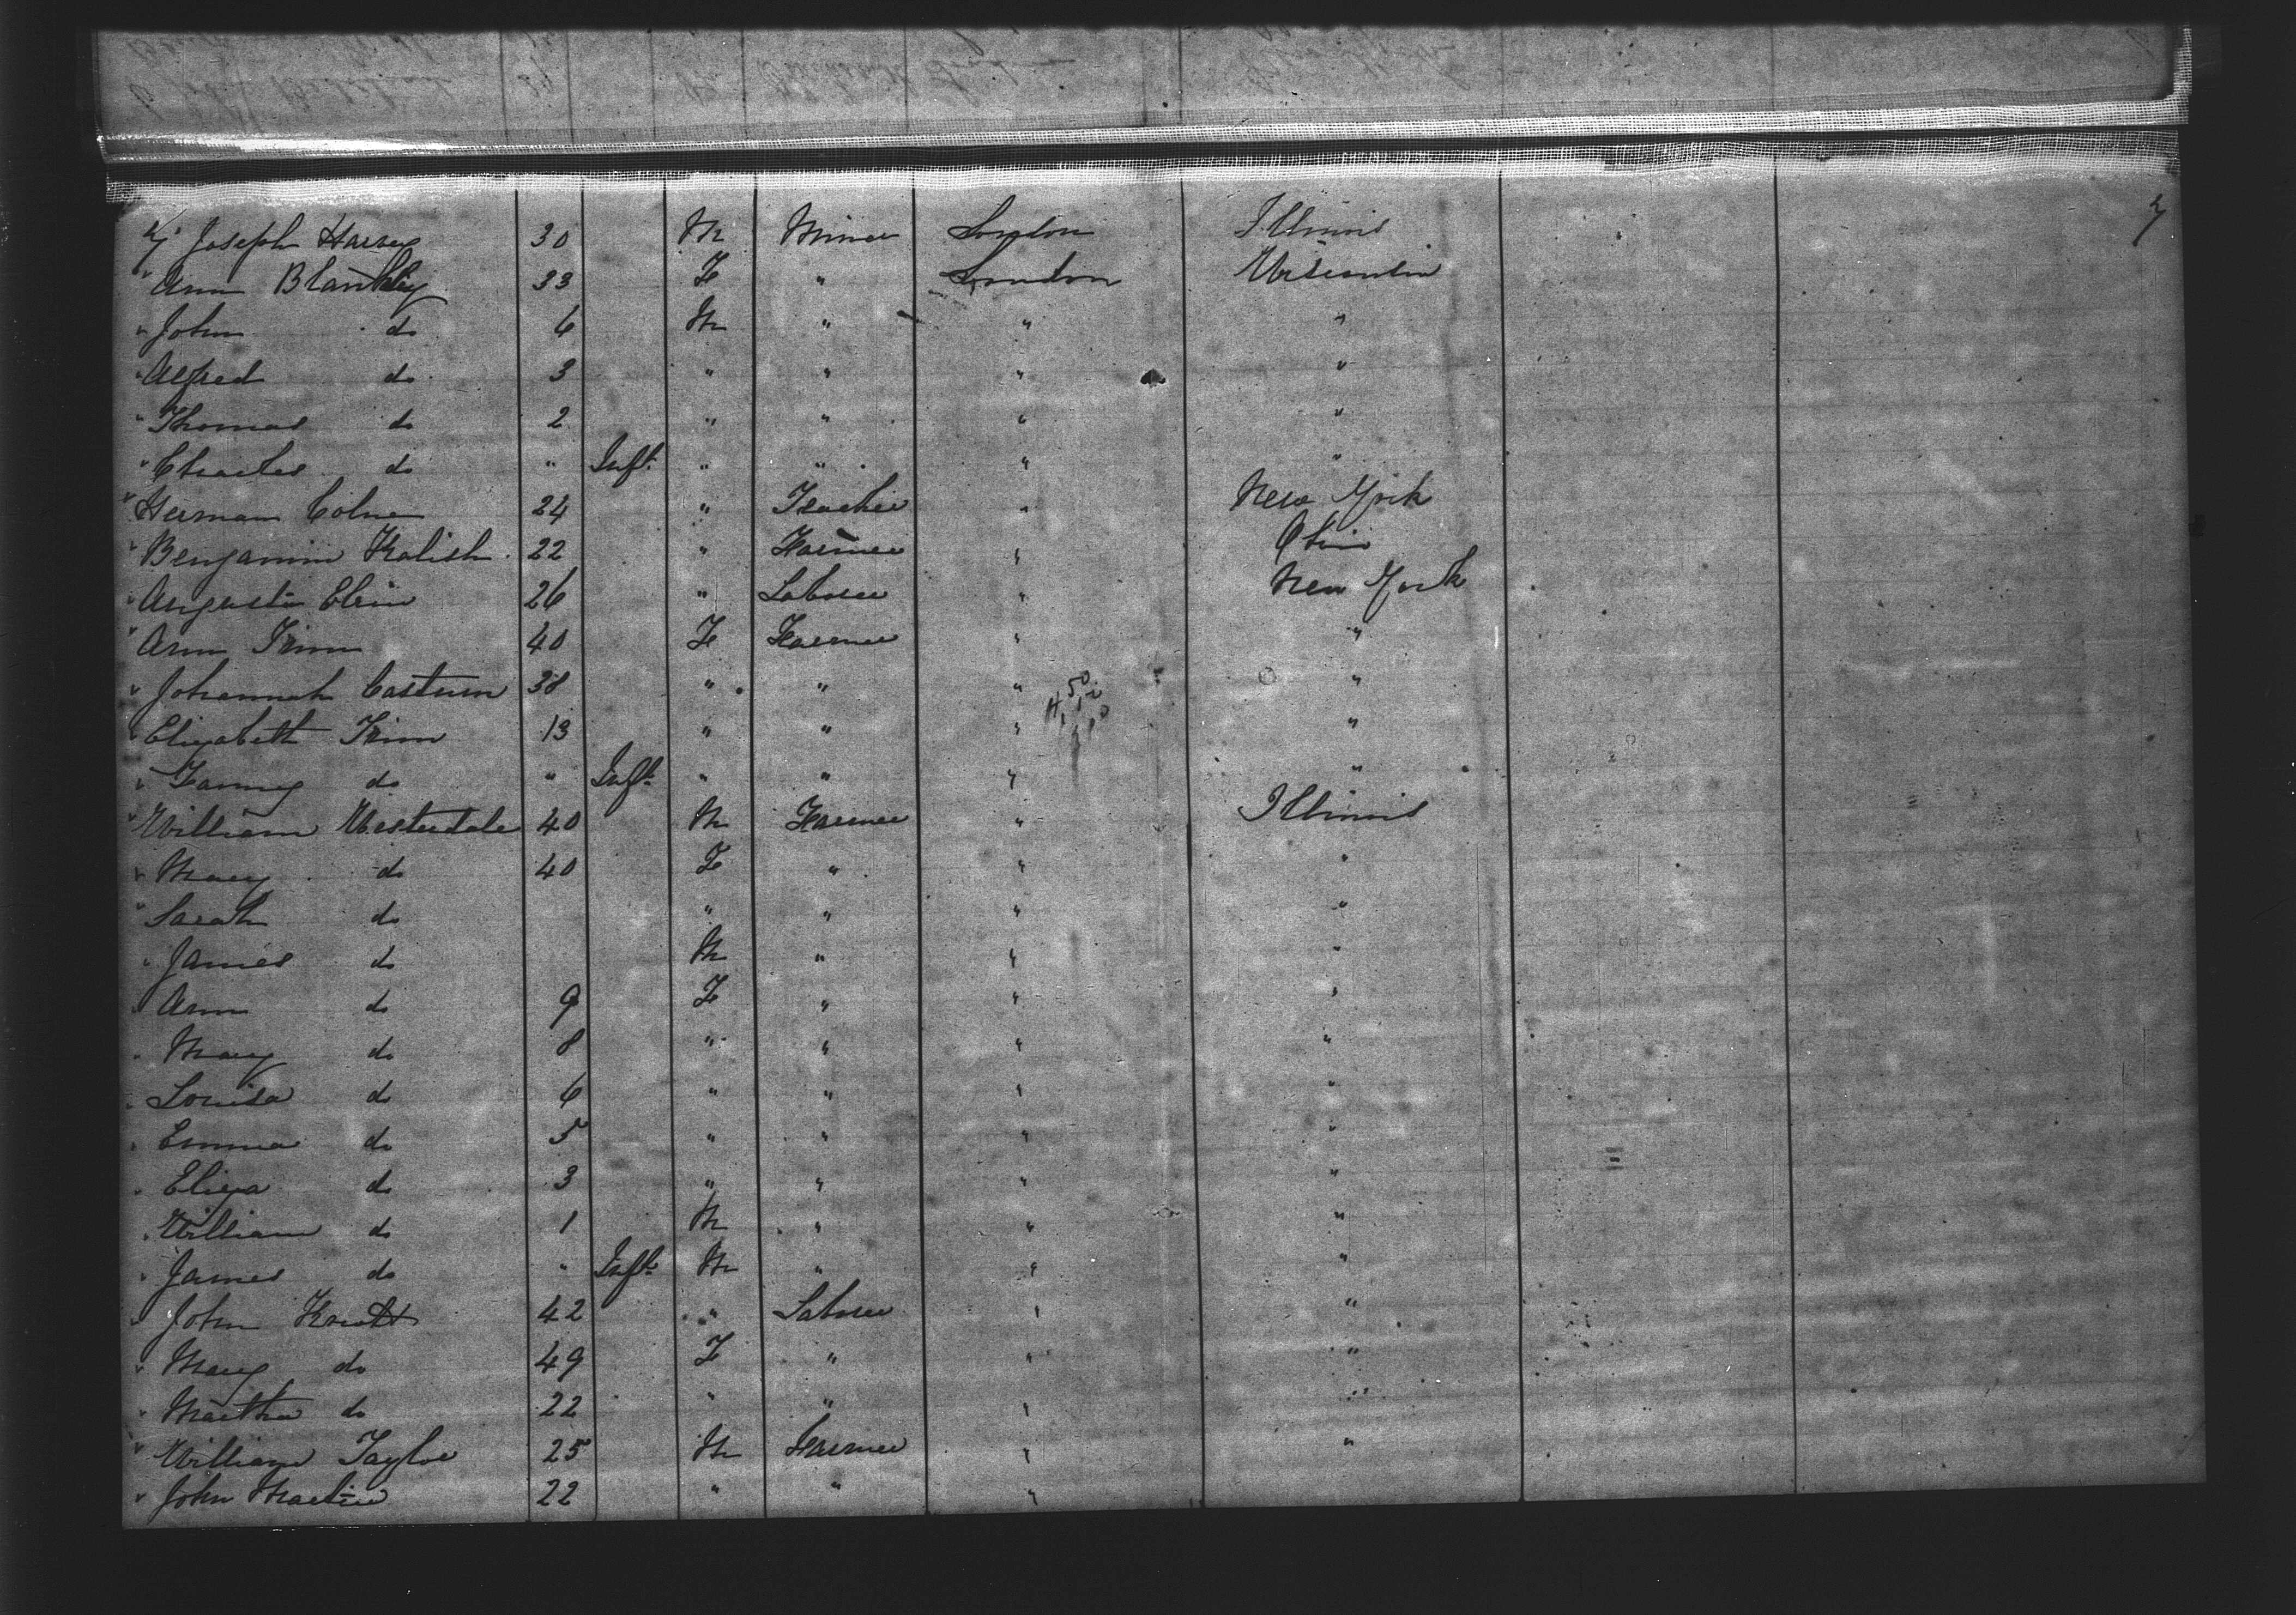 Joseph Harvey 30 M Miner London Illinois
" Ann Blankley 33 F " London Wisconsin
" John do 6 M " " "
" Alfred do 3 " " " "
" Thomas do 2 " " " "
" Charles do " Inft. " " " "
" Herman Colne 24 " Teacher " New York
" Benjamin Kalish 22 " Farmer " Ohio
" Augustin Clein 26 " Laborer " New York
" Ann Trim 40 F Farmer " "
" Johannah Casturn 38 " " " "
" Elizabeth Trim 13 " " " "
" Fanny do " Inft. " " " "
" William Westerdale 40 M Farmer " Illinois
" Mary do 40 F " " "
" Sarah do " " " "
" James do M " " "
" Ann do 9 F " " "
" Mary do 8 " " " "
" Louisa do 6 " " " "
" Emma do 5 " " " "
" Eliza do 3 " " " "
" William do 1 M " " "
" James do " Inft. M " " "
" John Knott 42 " Laborer " "
" Mary do 49 F " " "
" Martha do 22 " " " "
" William Taylor 25 M Farmer " "
" John Martin 22 " " "